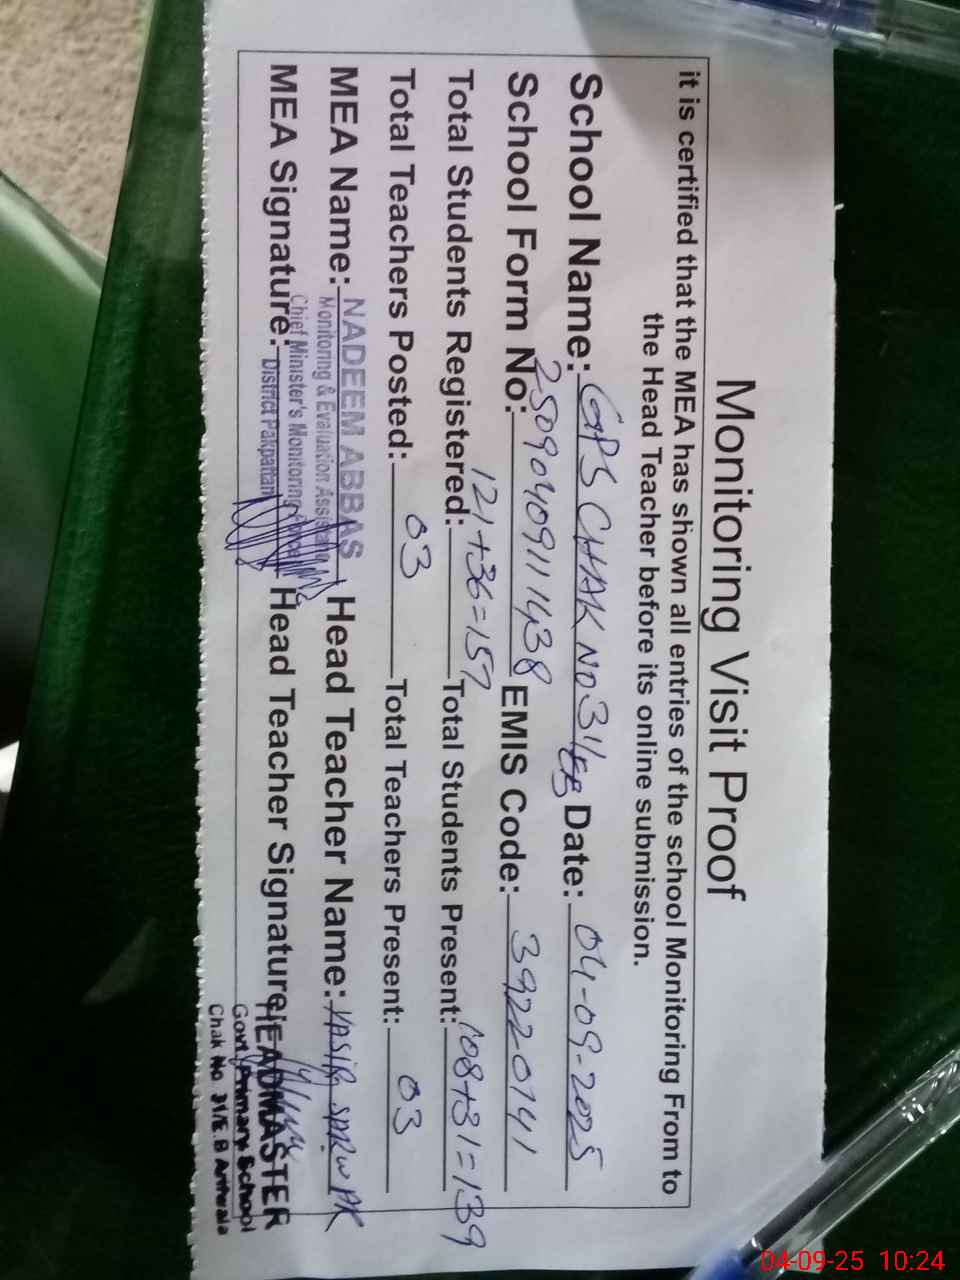 Monitoring Visit Proof
it is certified that the MEA has shown all entries of the school Monitoring From to
the Head Teacher before its online submission.
School Name: GPS CHAK NO 31/EB Date: 04-09-2025
School Form No: 25090409111438 EMIS Code: 39220141
Total Students Registered: 121+36=157 Total Students Present: 108+31=139
Total Teachers Posted: 03 Total Teachers Present: 03
MEA Name: NADEEM ABBAS Head Teacher Name: YASIR
Monitoring & Evaluation Assistant
Chief Minister's Monitoring
MEA Signature: District Pakpattan Head Teacher Signature HEADMASTER
Govt Primary School
Chak No 31/E.B Arifwala
04-09-25 10:24